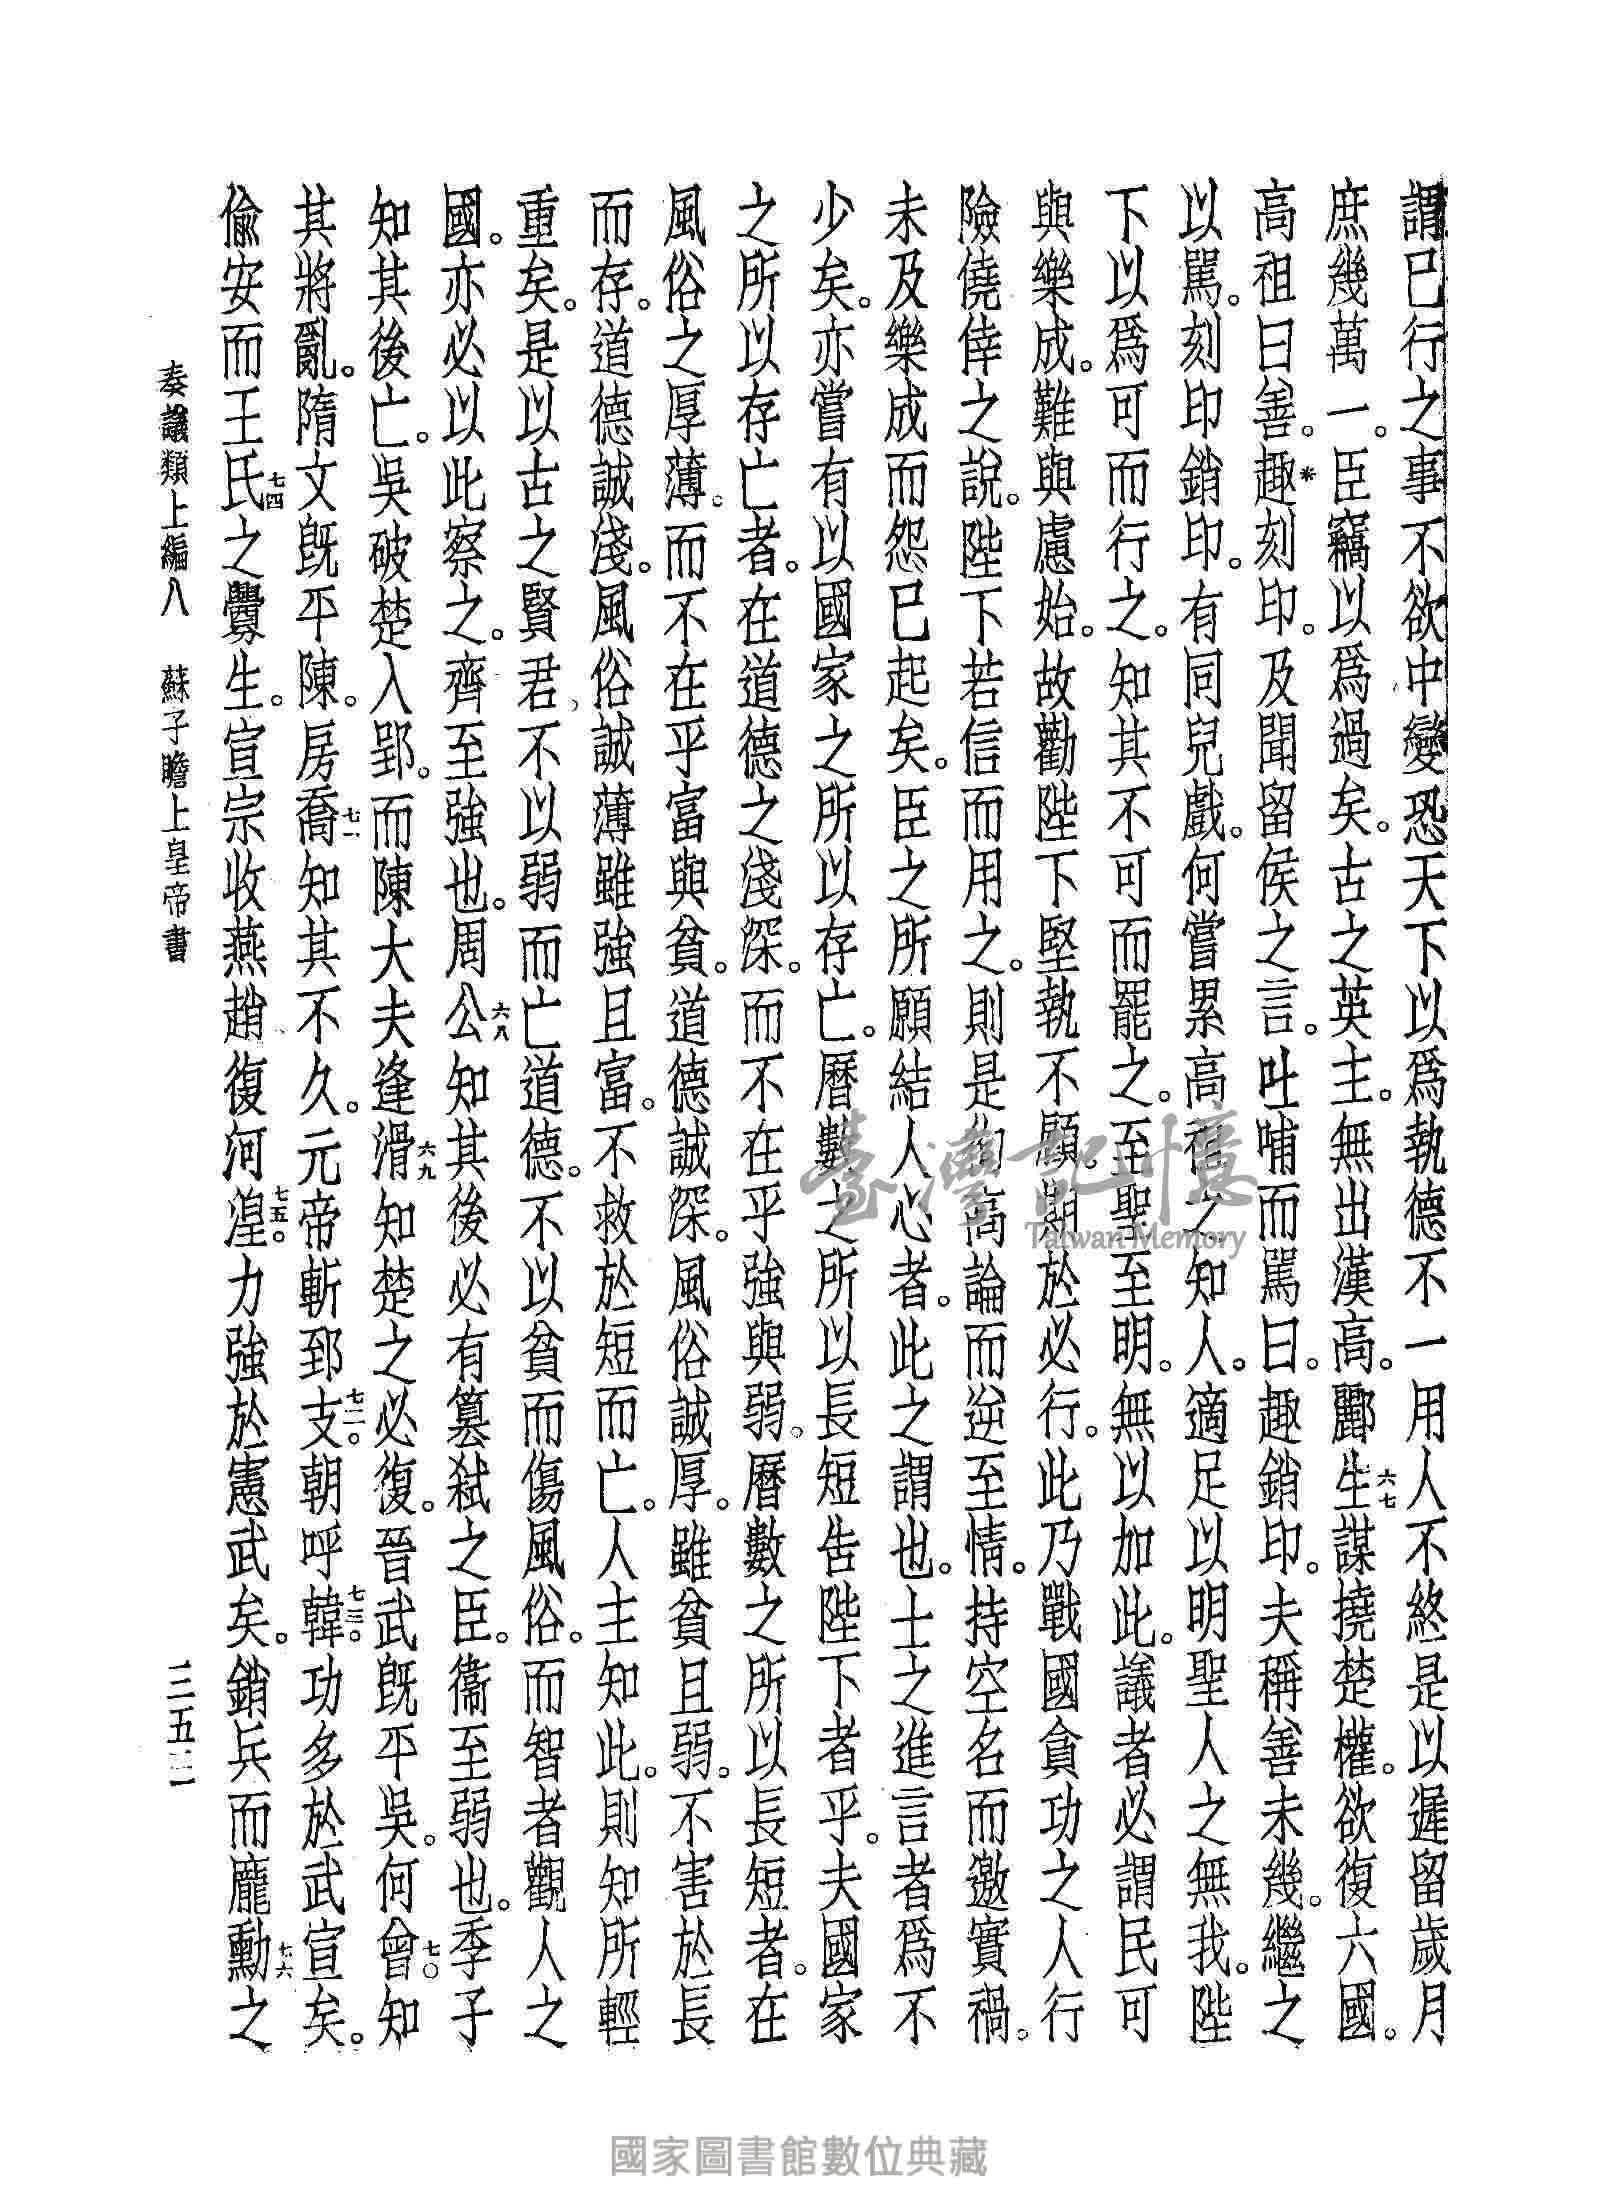 謂已行之事不欲中變恐天下以爲執德不一用人不終是以遲留歲月
庶幾萬一。臣竊以爲過矣。古之英主。無出漢高。酈生六七謀撓楚權。欲復六國。
高祖曰善。趣*刻印。及聞留侯之言。吐哺而罵曰。趣銷印。夫稱善未幾。繼之
以罵。刻印銷印。有同兒戲。何嘗累高祖之知人。適足以明聖人之無我。陛
下以爲可而行之。知其不可而罷之。至聖至明。無以加此。議者必謂民可
與樂成。難與慮始。故勸陛下堅執不顧。期於必行。此乃戰國貪功之人行
險僥倖之說。陛下若信而用之。則是徇高論而逆至情。持空名而邀實禍。
未及樂成而怨已起矣。臣之所願結人心者。此之謂也。士之進言者爲不
少矣。亦嘗有以國家之所以存亡。曆數之所以長短告陛下者乎。夫國家
之所以存亡者。在道德之淺深。而不在乎強與弱。曆數之所以長短者。在
風俗之厚薄。而不在乎富與貧。道德誠深。風俗誠厚。雖貧且弱。不害於長
而存。道德誠淺。風俗誠薄雖強且富。不救於短而亡。人主知此。則知所輕
重矣。是以古之賢君、不以弱而亡道德。不以貧而傷風俗。而智者觀人之
國。亦必以此察之。齊至強也。周公六八知其後必有篡弒之臣。衞至弱也。季子
知其後亡。吳破楚入郢。而陳大夫逢滑六九知楚之必復。晉武既平吳。何曾七〇知
其將亂。隋文既平陳。房喬七一知其不久。元帝斬郅支七二。朝呼韓七三。功多於武宣矣。
偷安而王氏七四之釁生。宣宗收燕趙、復河湟七五。力強於憲武矣。銷兵而龐勳七六之
奏議類上編八 蘇子瞻上皇帝書
三五三
臺灣記憶
Taiwan Memory
國家圖書館數位典藏